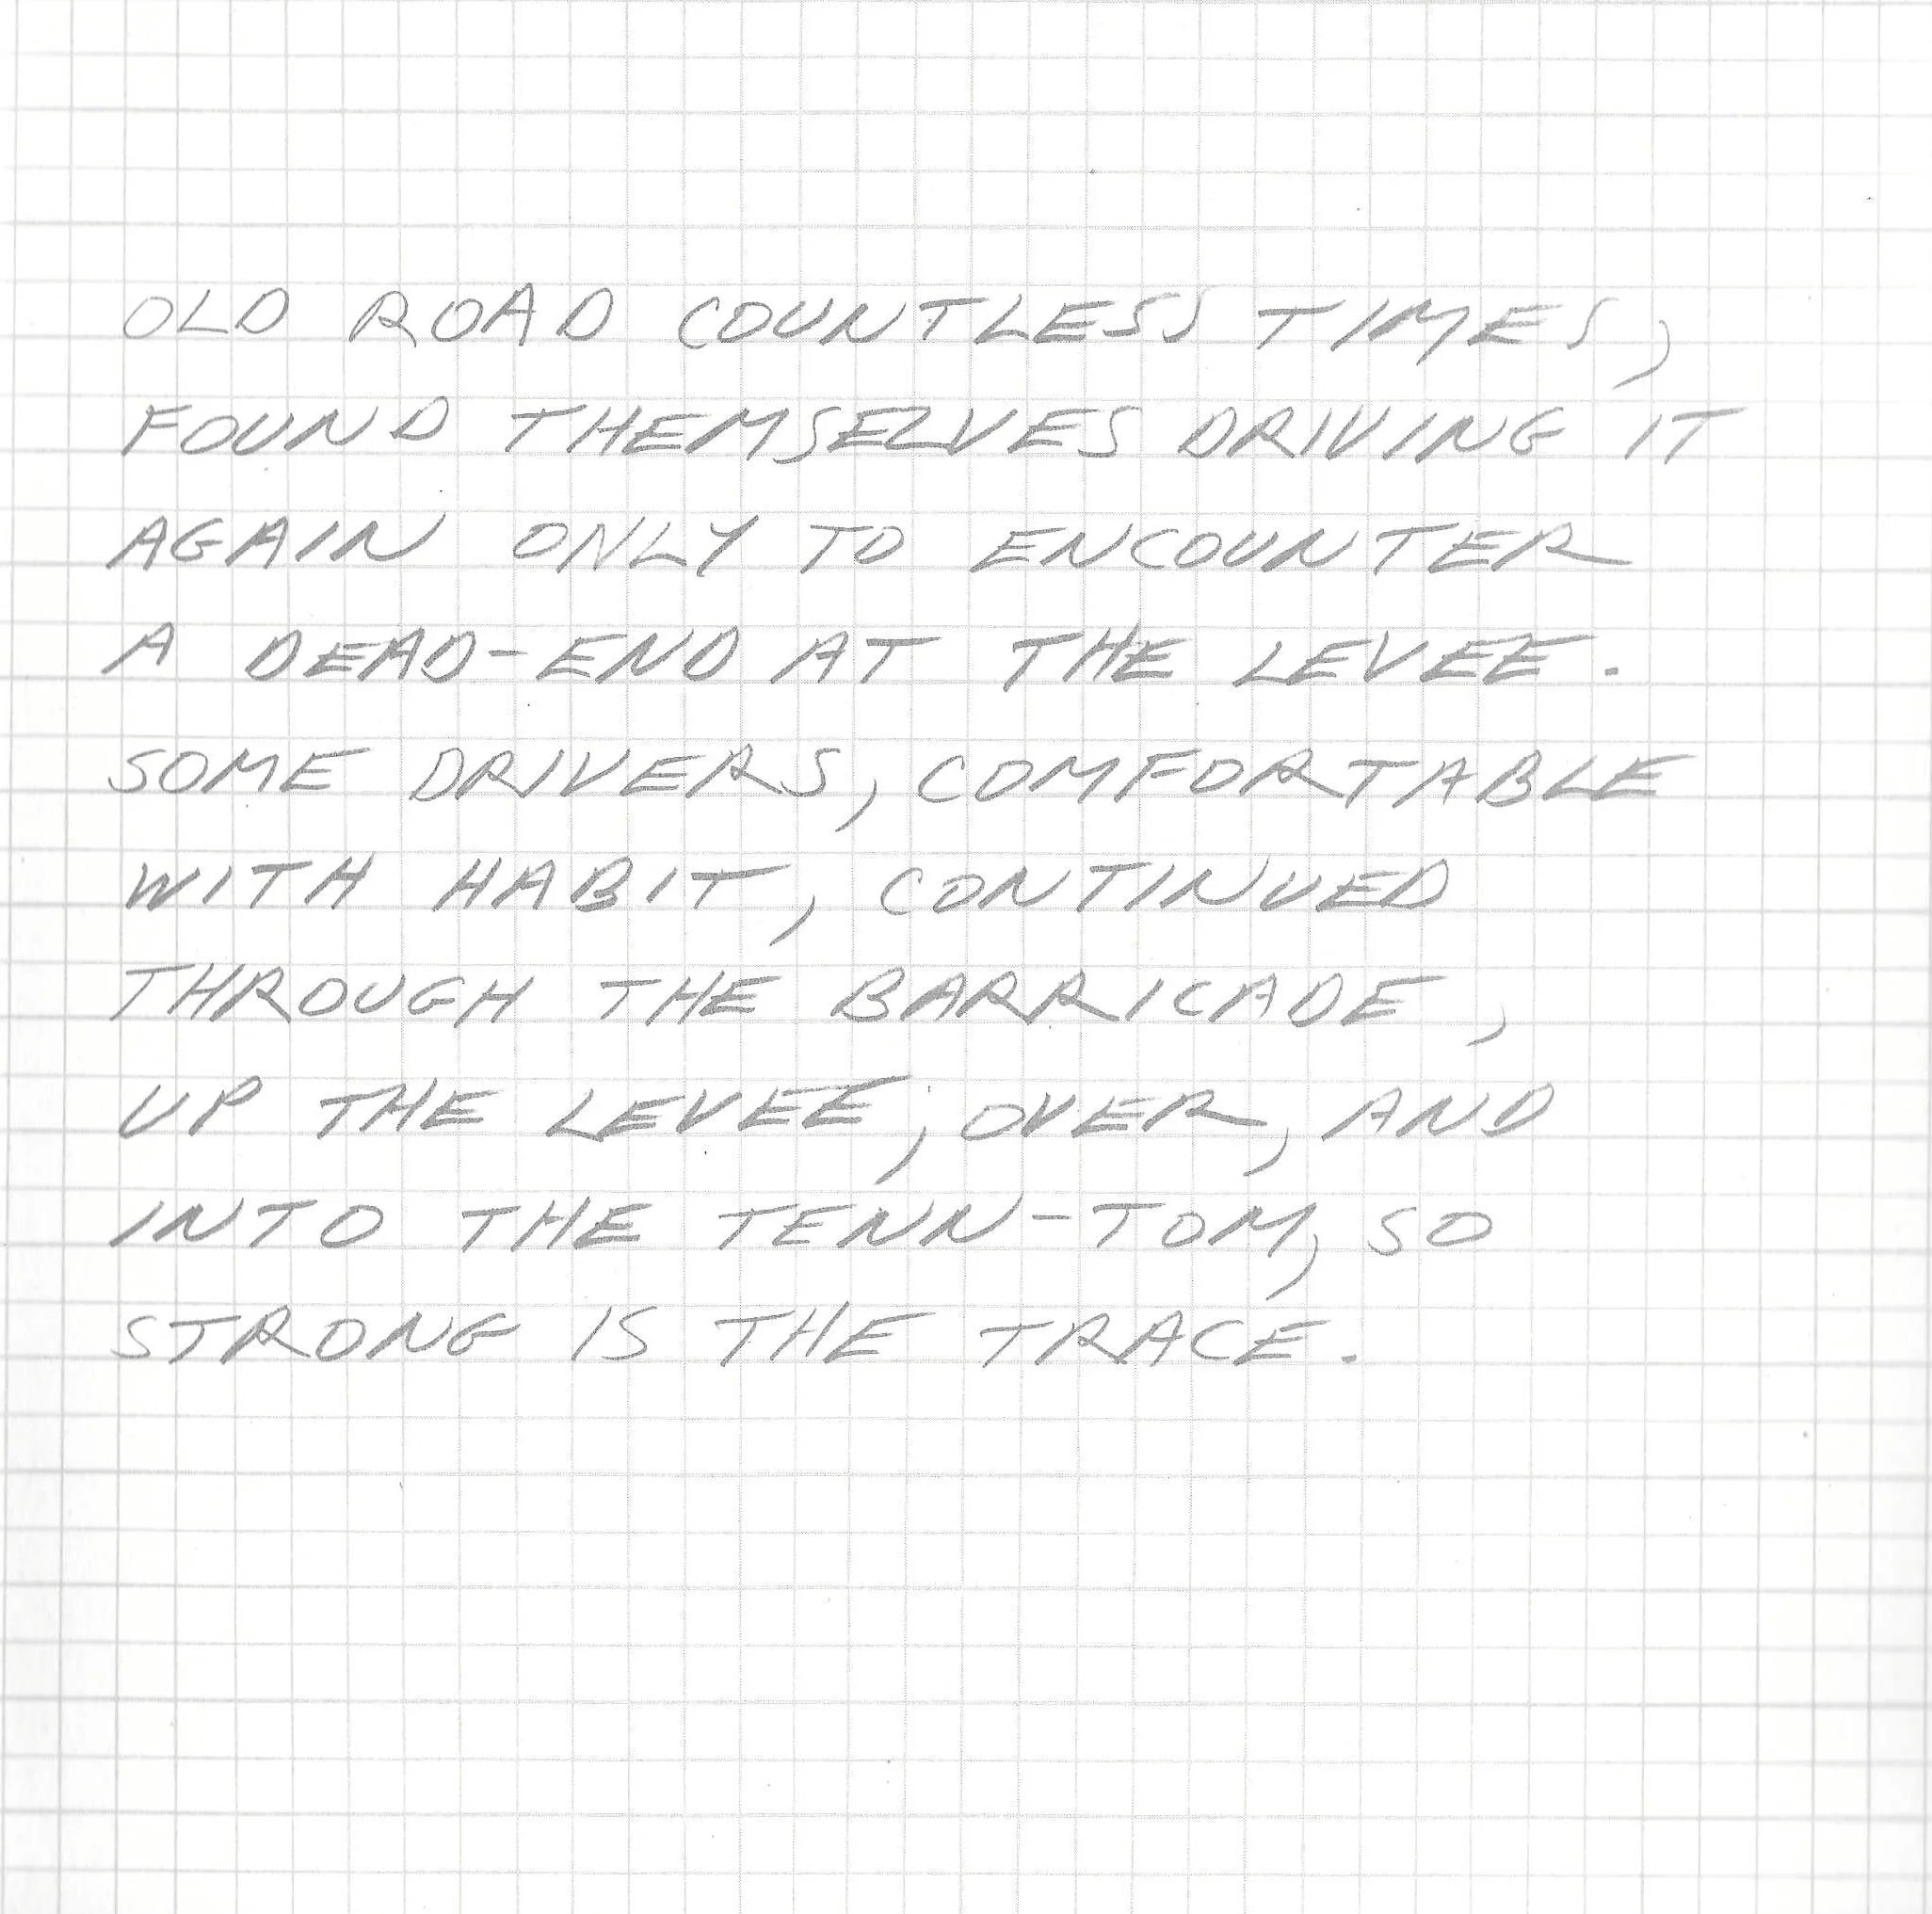 OLD ROAD COUNTLESS TIMES,
FOUND THEMSELVES DRIVING IT
AGAIN ONLY TO ENCOUNTER
A DEAD-END AT THE LEVEE.
SOME DRIVERS, COMFORTABLE
WITH HABIT, CONTINUED
THROUGH THE BARRICADE,
UP THE LEVEE, OVER, AND
INTO THE TENN-TOM, SO
STRONG IS THE TRACE.